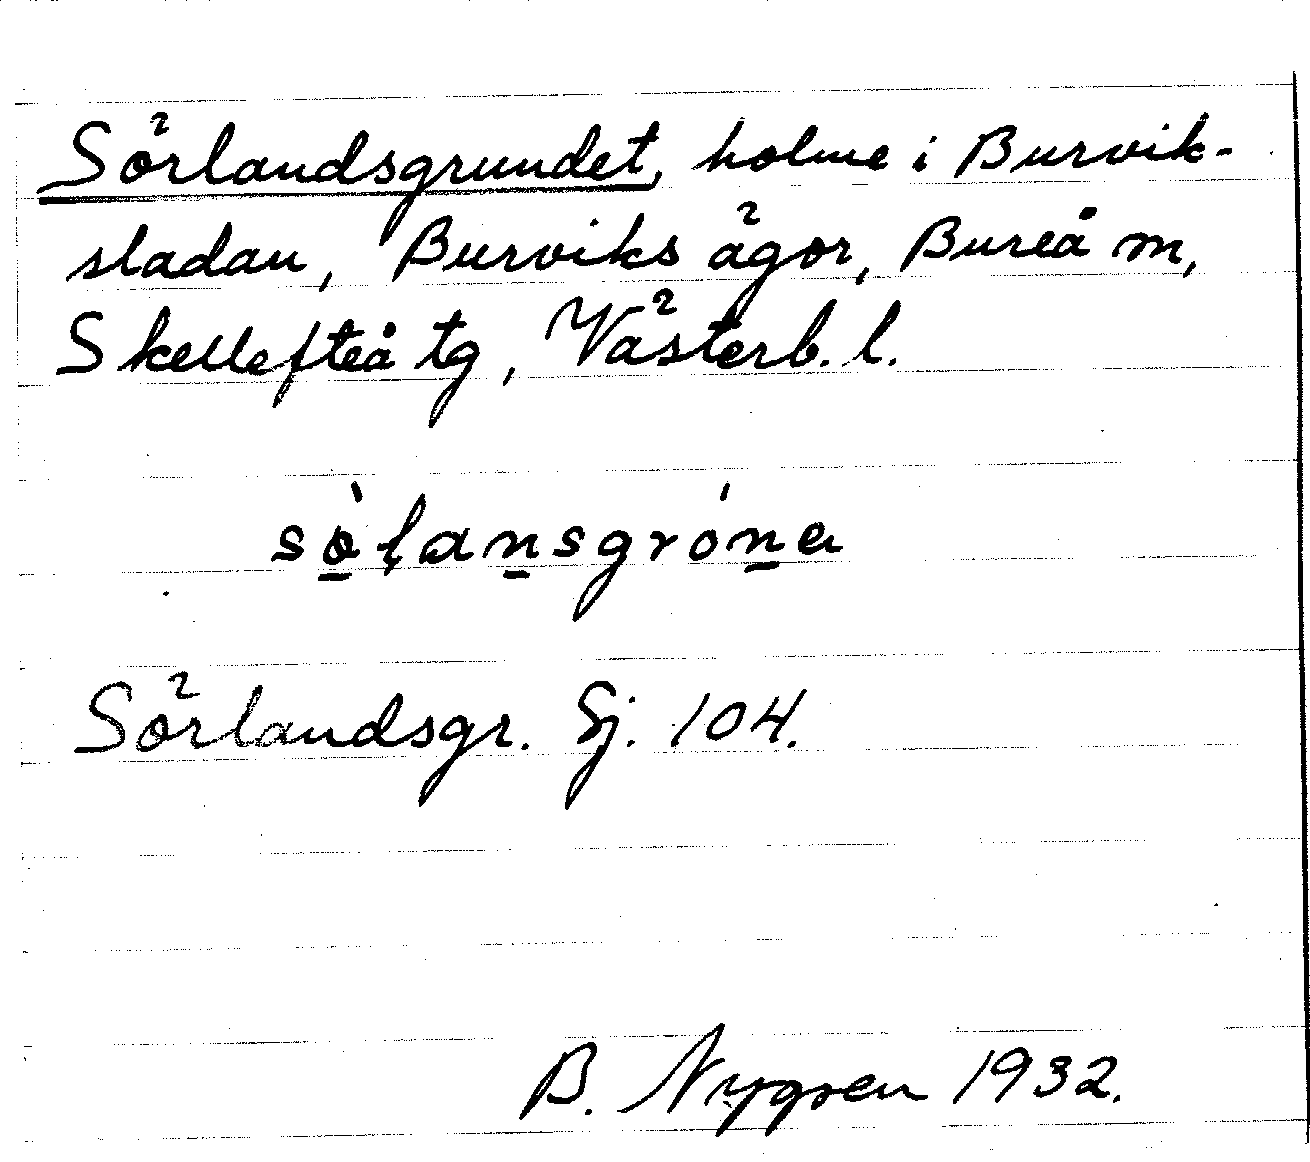 Sörlandsgrundet, holme i Burvik-
sladan, Burviks ägor, Bureå m,
Skellefteå tg, Västerb. l.
sò̱ɭaṉsgróṉa
Sörlandsgr. Sj. 104.
B. Nygren 1932.